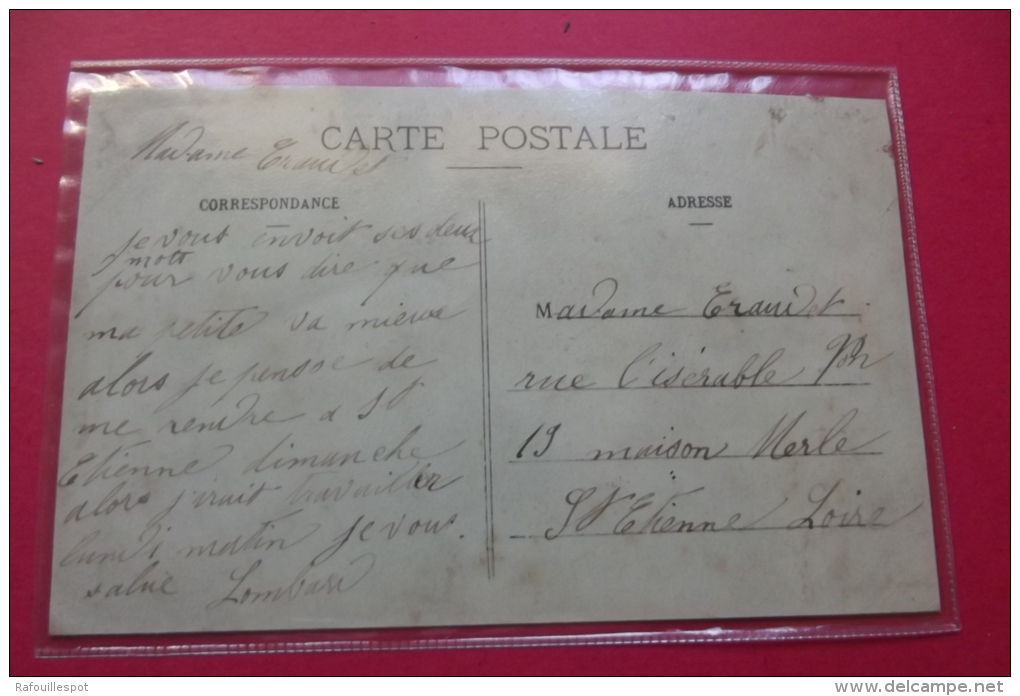 CARTE POSTALE
Madame Eraudt
CORRESPONDANCE
je vous envoit ses deux
mots
pour vous dire que
ma petite va mieux
alors je pensse de
me rendre a St
Etienne dimanche
alors j'irait travailler
lundi matin je vous
salue Lombard
ADRESSE
Madame Eraudt
rue l'isérable
19 maison Merle
St Etienne Loire
Rafouillespot
www.delcampe.net